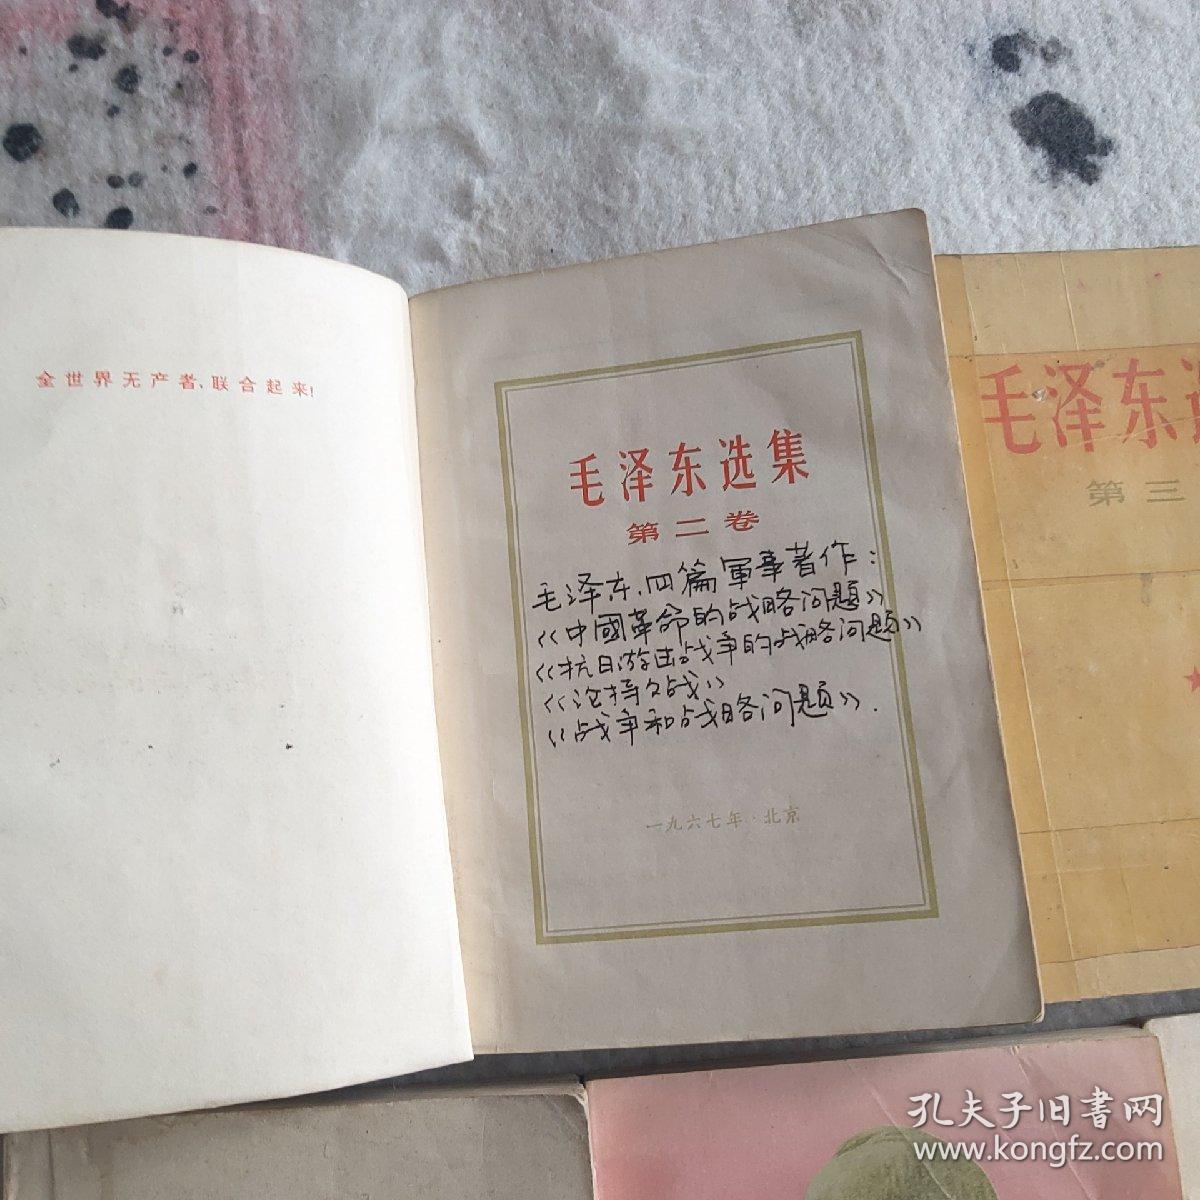 全世界无产者,联合起来!
毛泽东选集
第二卷
毛泽东、四篇軍事著作:
《中國革命的战略问题》
《抗日游击战争的战略问题》
《论持久战》
《战争和战略问题》.
一九六七年·北京
毛泽东选
第三
孔夫子旧書网
www.kongfz.com